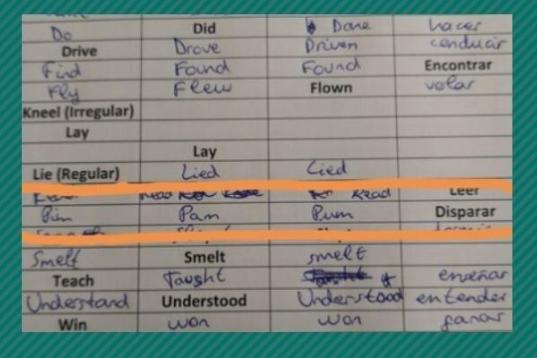 Do Did Done hacer
Drive Drove Driven conducir
Find Found Found Encontrar
Fly Flew Flown volar
Kneel (Irregular)
Lay
Lay
Lie (Regular) Lied Lied
Read Read Leer
Pim Pam Pum Disparar
Smell Smelt smelt
Teach Taught enseñar
Understand Understood Understood entender
Win won won ganar